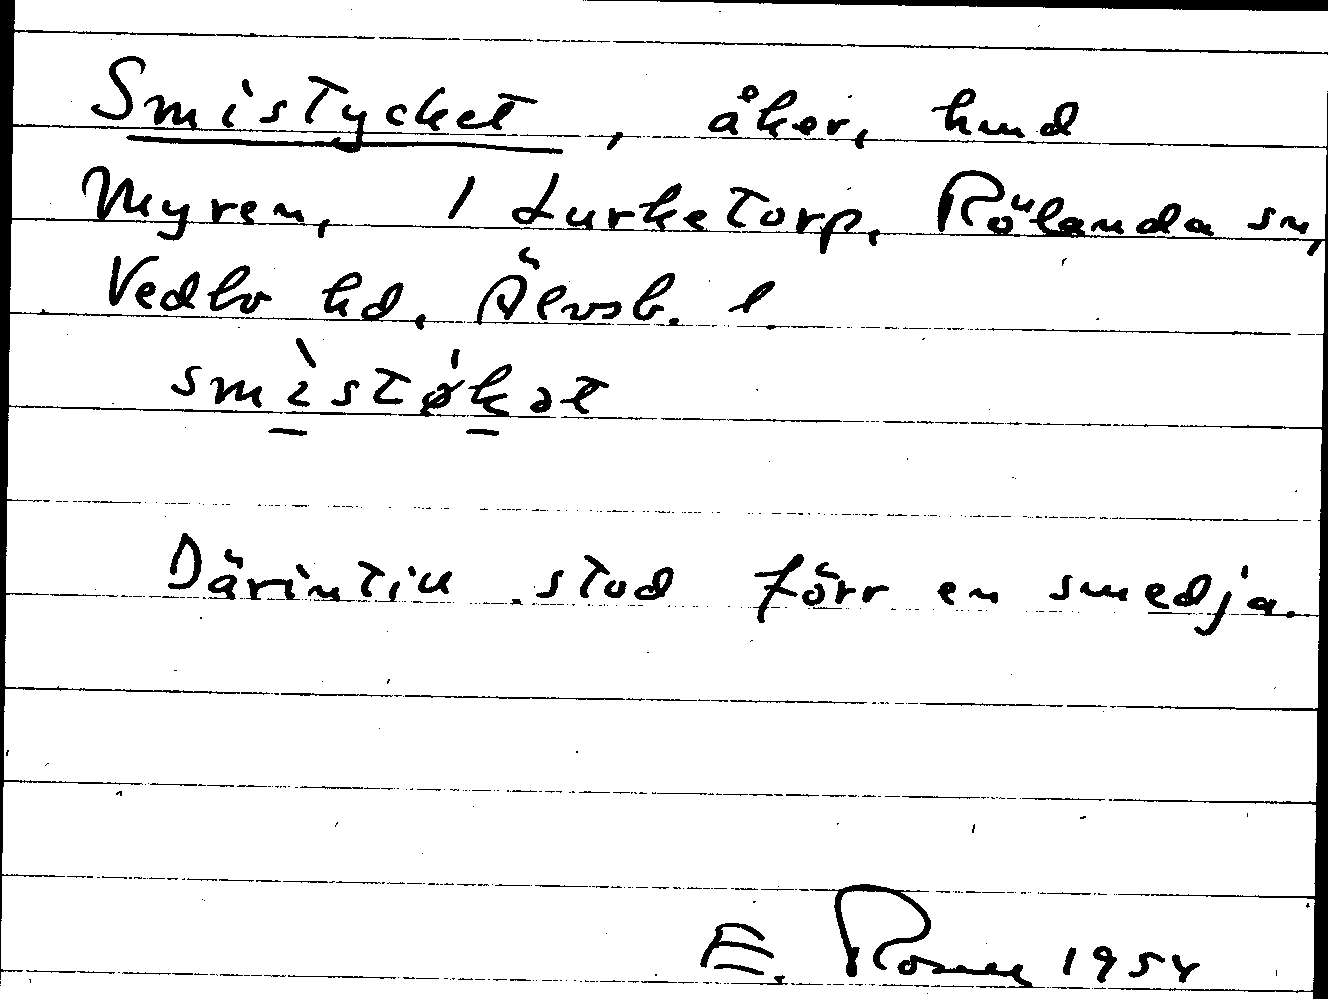 Smistycket, åker, hmd
Myren, 1 Lurketorp, Rölanda sn,
Vedbo hd, Älvsb. l.
smìstǿkət
Därintill stod förr en smedja.
E. Rosell 1954